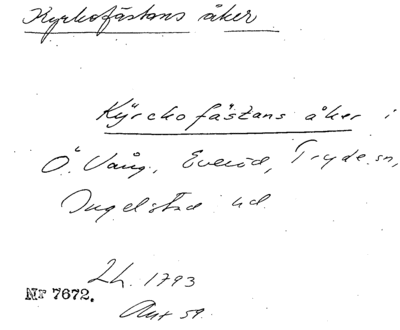 Kyrkofästans åker
Kÿrckofästans åker i
Ö. Vång, Everöd, Tryde sn,
Ingelstad hd.
Lh. 1793
Nr 7672.
Akt 59.